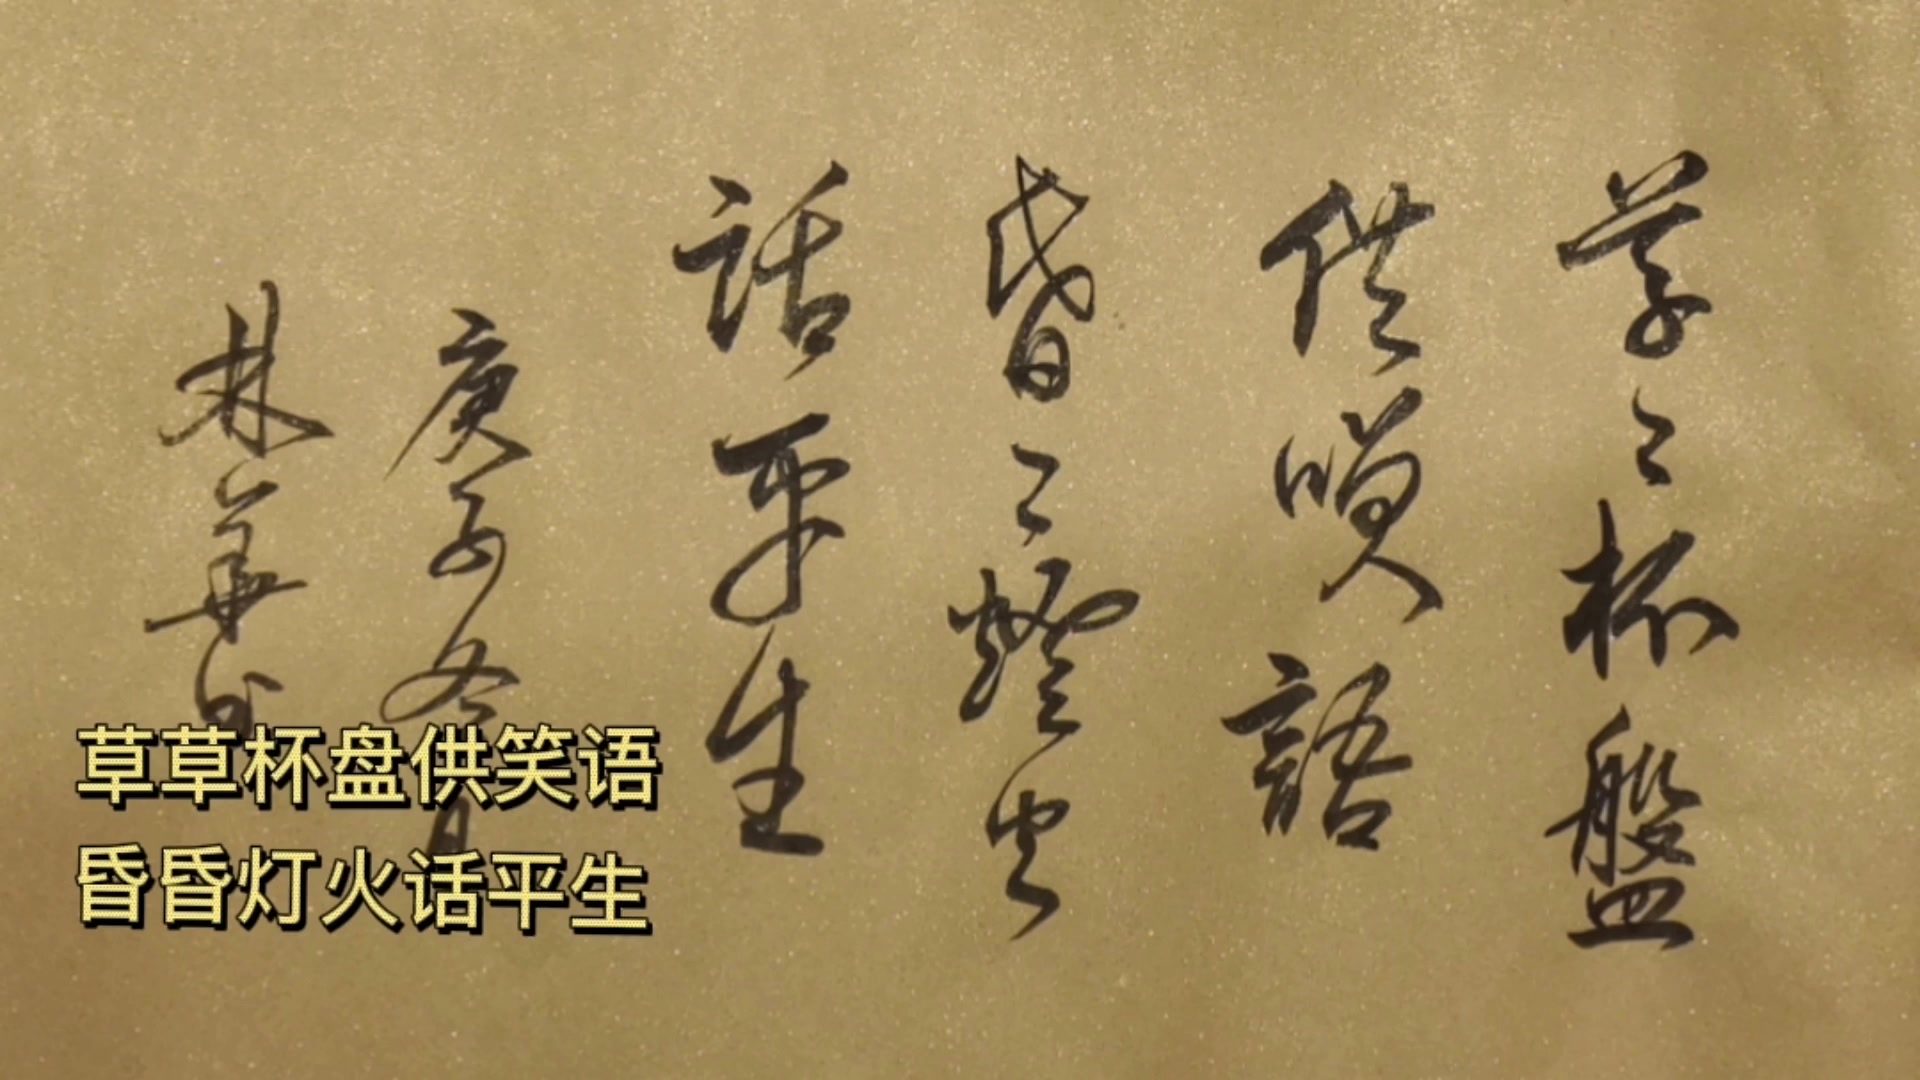 草々杯盤
供咲語
昏々燈火
話平生
庚子冬月
林華书
草草杯盘供笑语
昏昏灯火话平生